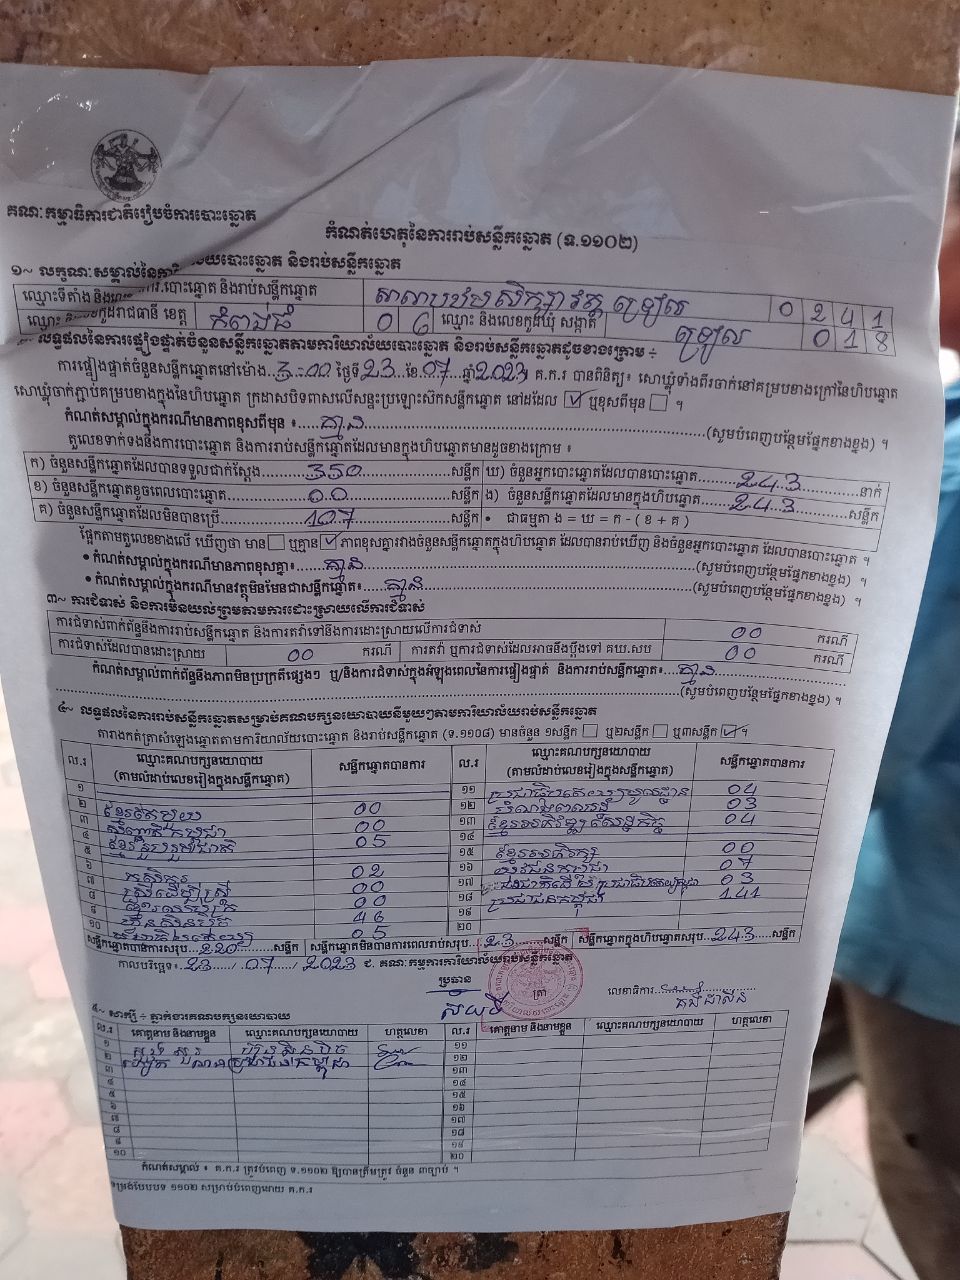 គណៈកម្មាធិការជាតិរៀបចំការបោះឆ្នោត
កំណត់ហេតុនៃការរាប់សន្លឹកឆ្នោត (ទ.១១០២)
១~ លក្ខណៈសម្គាល់នៃការិ យបោះឆ្នោត និងរាប់សន្លឹកឆ្នោត
ឈ្មោះទីតាំង និង បោះឆ្នោត និងរាប់សន្លឹកឆ្នោត សាលាបឋមសិក្សា វត្ត ឡើល 0 2 4 1
ឈ្មោះ និងលេខកូដរាជធានី ខេត្ត កំពង់ធំ 0 6 ឈ្មោះ និងលេខកូដឃុំ សង្កាត់ 0 1 8
លទ្ធផលនៃការផ្ទៀងផ្ទាត់ចំនួនសន្លឹកឆ្នោតតាមការិយាល័យបោះឆ្នោត និងរាប់សន្លឹកឆ្នោតដូចខាងក្រោម ÷
ការផ្ទៀងផ្ទាត់ចំនួនសន្លឹកឆ្នោតនៅម៉ោង 3-00 ថ្ងៃទី 23 ខែ 07 ឆ្នាំ 2023 គ.ក.រ បានពិនិត្យ៖ សោឃ្លុំទាំងពីរចាក់នៅគម្របខាងក្រៅនៃហិបឆ្នោត
សោឃ្លុំចាក់ភ្ជាប់គម្របខាងក្នុងនៃហិបឆ្នោត ក្រដាសបិទពាសលើសន្ទះប្រឡោះស៊កសន្លឹកឆ្នោត នៅដដែល ☑ ឬខុសពីមុន ☐ ។
កំណត់សម្គាល់ក្នុងករណីមានភាពខុសពីមុន ៖ គ្មាន (សូមបំពេញបន្ថែមផ្នែកខាងខ្នង) ។
តួលេខទាក់ទងនឹងការបោះឆ្នោត និងការរាប់សន្លឹកឆ្នោតដែលមានក្នុងហិបឆ្នោតមានដូចខាងក្រោម ៖
ក) ចំនួនសន្លឹកឆ្នោតដែលបានទទួលជាក់ស្តែង 350 សន្លឹក ឃ) ចំនួនអ្នកបោះឆ្នោតដែលបានបោះឆ្នោត 243 នាក់
ខ) ចំនួនសន្លឹកឆ្នោតខូចពេលបោះឆ្នោត 00 សន្លឹក ង) ចំនួនសន្លឹកឆ្នោតដែលមានក្នុងហិបឆ្នោត 243 សន្លឹក
គ) ចំនួនសន្លឹកឆ្នោតដែលមិនបានប្រើ 107 សន្លឹក • ជាធម្មតា ង = ឃ = ក - ( ខ + គ )
ផ្អែកតាមតួលេខខាងលើ ឃើញថា មាន ☐ ឬគ្មាន ☑ ភាពខុសគ្នារវាងចំនួនសន្លឹកឆ្នោតក្នុងហិបឆ្នោត ដែលបានរាប់ឃើញ និងចំនួនអ្នកបោះឆ្នោត ដែលបានបោះឆ្នោត ។
• កំណត់សម្គាល់ក្នុងករណីមានភាពខុសគ្នា៖ គ្មាន (សូមបំពេញបន្ថែមផ្នែកខាងខ្នង) ។
• កំណត់សម្គាល់ក្នុងករណីមានវត្ថុមិនមែនជាសន្លឹកឆ្នោត៖ គ្មាន (សូមបំពេញបន្ថែមផ្នែកខាងខ្នង) ។
៣~ ការជំទាស់ និងការមិនយល់ព្រមតាមការដោះស្រាយលើការជំទាស់
ការជំទាស់ពាក់ព័ន្ធនឹងការរាប់សន្លឹកឆ្នោត និងការតវ៉ាទៅនឹងការដោះស្រាយលើការជំទាស់ 00 ករណី
ការជំទាស់ដែលបានដោះស្រាយ 00 ករណី ការតវ៉ា ឬការជំទាស់ដែលអាចនឹងប្តឹងទៅ គឃ.សប 00 ករណី
កំណត់សម្គាល់ពាក់ព័ន្ធនឹងភាពមិនប្រក្រតីផ្សេងៗ ឬ/និងការជំទាស់ក្នុងអំឡុងពេលនៃការផ្ទៀងផ្ទាត់ និងការរាប់សន្លឹកឆ្នោត៖ គ្មាន
(សូមបំពេញបន្ថែមផ្នែកខាងខ្នង) ។
៤~ លទ្ធផលនៃការរាប់សន្លឹកឆ្នោតសម្រាប់គណបក្សនយោបាយនីមួយៗតាមការិយាល័យរាប់សន្លឹកឆ្នោត
តារាងកត់ត្រាសំឡេងឆ្នោតតាមការិយាល័យបោះឆ្នោត និងរាប់សន្លឹកឆ្នោត (ទ.១១០៨) មានចំនួន ១សន្លឹក ☐ ឬ២សន្លឹក ☐ ឬ៣សន្លឹក ☑ ។
ល.រ ឈ្មោះគណបក្សនយោបាយ (តាមលំដាប់លេខរៀងក្នុងសន្លឹកឆ្នោត) សន្លឹកឆ្នោតបានការ ល.រ ឈ្មោះគណបក្សនយោបាយ (តាមលំដាប់លេខរៀងក្នុងសន្លឹកឆ្នោត) សន្លឹកឆ្នោតបានការ
១ ១១ ប្រជាធិបតេយ្យមូលដ្ឋាន 04
២ ខ្មែរតែមួយ 00 ១២ 03
៣ 00 ១៣ ខ្មែរអភិវឌ្ឍន៍សេដ្ឋកិច្ច 04
៤ ខ្មែររួបរួមជាតិ 05 ១៤
៥ ១៥ 00
៦ កសិករ 02 ១៦ យុវជនកម្ពុជា 07
៧ ស្ត្រីដើម្បីស្ត្រី 00 ១៧ 03
៨ 00 ១៨ ប្រជាជនកម្ពុជា 141
៩ ហ្វ៊ុនស៊ិនប៉ិច 46 ១៩
១០ 05 ២០
សន្លឹកឆ្នោតបានការសរុប 220 សន្លឹក សន្លឹកឆ្នោតមិនបានការពេលរាប់សរុប 23 សន្លឹក សន្លឹកឆ្នោតក្នុងហិបឆ្នោតសរុប 243 សន្លឹក
កាលបរិច្ឆេទ៖ 23 / 07 / 2023 ជ. គណៈកម្មការការិយាល័យរាប់សន្លឹកឆ្នោត
ប្រធាន ត្រា លេខាធិការ
៥~ សាក្សី ÷ ភ្នាក់ងារគណបក្សនយោបាយ
ល.រ គោត្តនាម និងនាមខ្លួន ឈ្មោះគណបក្សនយោបាយ ហត្ថលេខា ល.រ គោត្តនាម និងនាមខ្លួន ឈ្មោះគណបក្សនយោបាយ ហត្ថលេខា
១ ហ្វ៊ុនស៊ិនប៉ិច ១១
២ ប្រជាជនកម្ពុជា ១២
៣ ១៣
៤ ១៤
៥ ១៥
៦ ១៦
៧ ១៧
៨ ១៨
៩ ១៩
១០ ២០
កំណត់សម្គាល់ ៖ គ.ក.រ ត្រូវបំពេញ ទ.១១០២ ឱ្យបានត្រឹមត្រូវ ចំនួន ៣ច្បាប់ ។
ទម្រង់បែបបទ ១១០២ សម្រាប់បំពេញដោយ គ.ក.រ